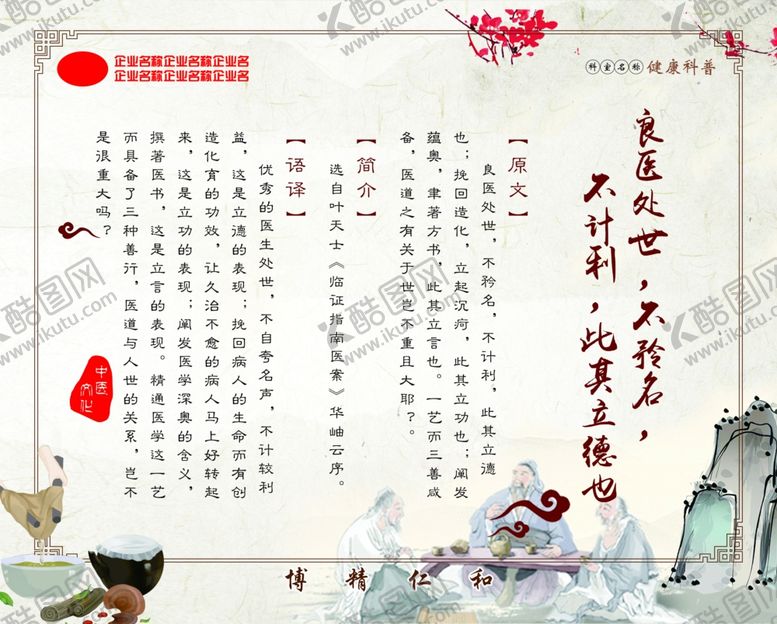 企业名称企业名称企业名
企业名称企业名称企业名
科室名称 健康科普
良医处世，不矜名，
不计利，此其立德也
【原文】
良医处世，不矜名，不计利，此其立德
也；挽回造化，立起沉疴，此其立功也；阐发
蕴奥，聿著方书，此其立言也。一艺而三善咸
备，医道之有关于世岂不重且大耶？。
【简介】
选自叶天士《临证指南医案》华岫云序。
【语译】
优秀的医生处世，不自夸名声，不计较利
益，这是立德的表现；挽回病人的生命而有创
造化育的功效，让久治不愈的病人马上好转起
来，这是立功的表现；阐发医学深奥的含义，
撰著医书，这是立言的表现。精通医学这一艺
而具备了三种善行，医道与人世的关系，岂不
是很重大吗？
中医
文化
博精仁和
酷图网
www.ikutu.com